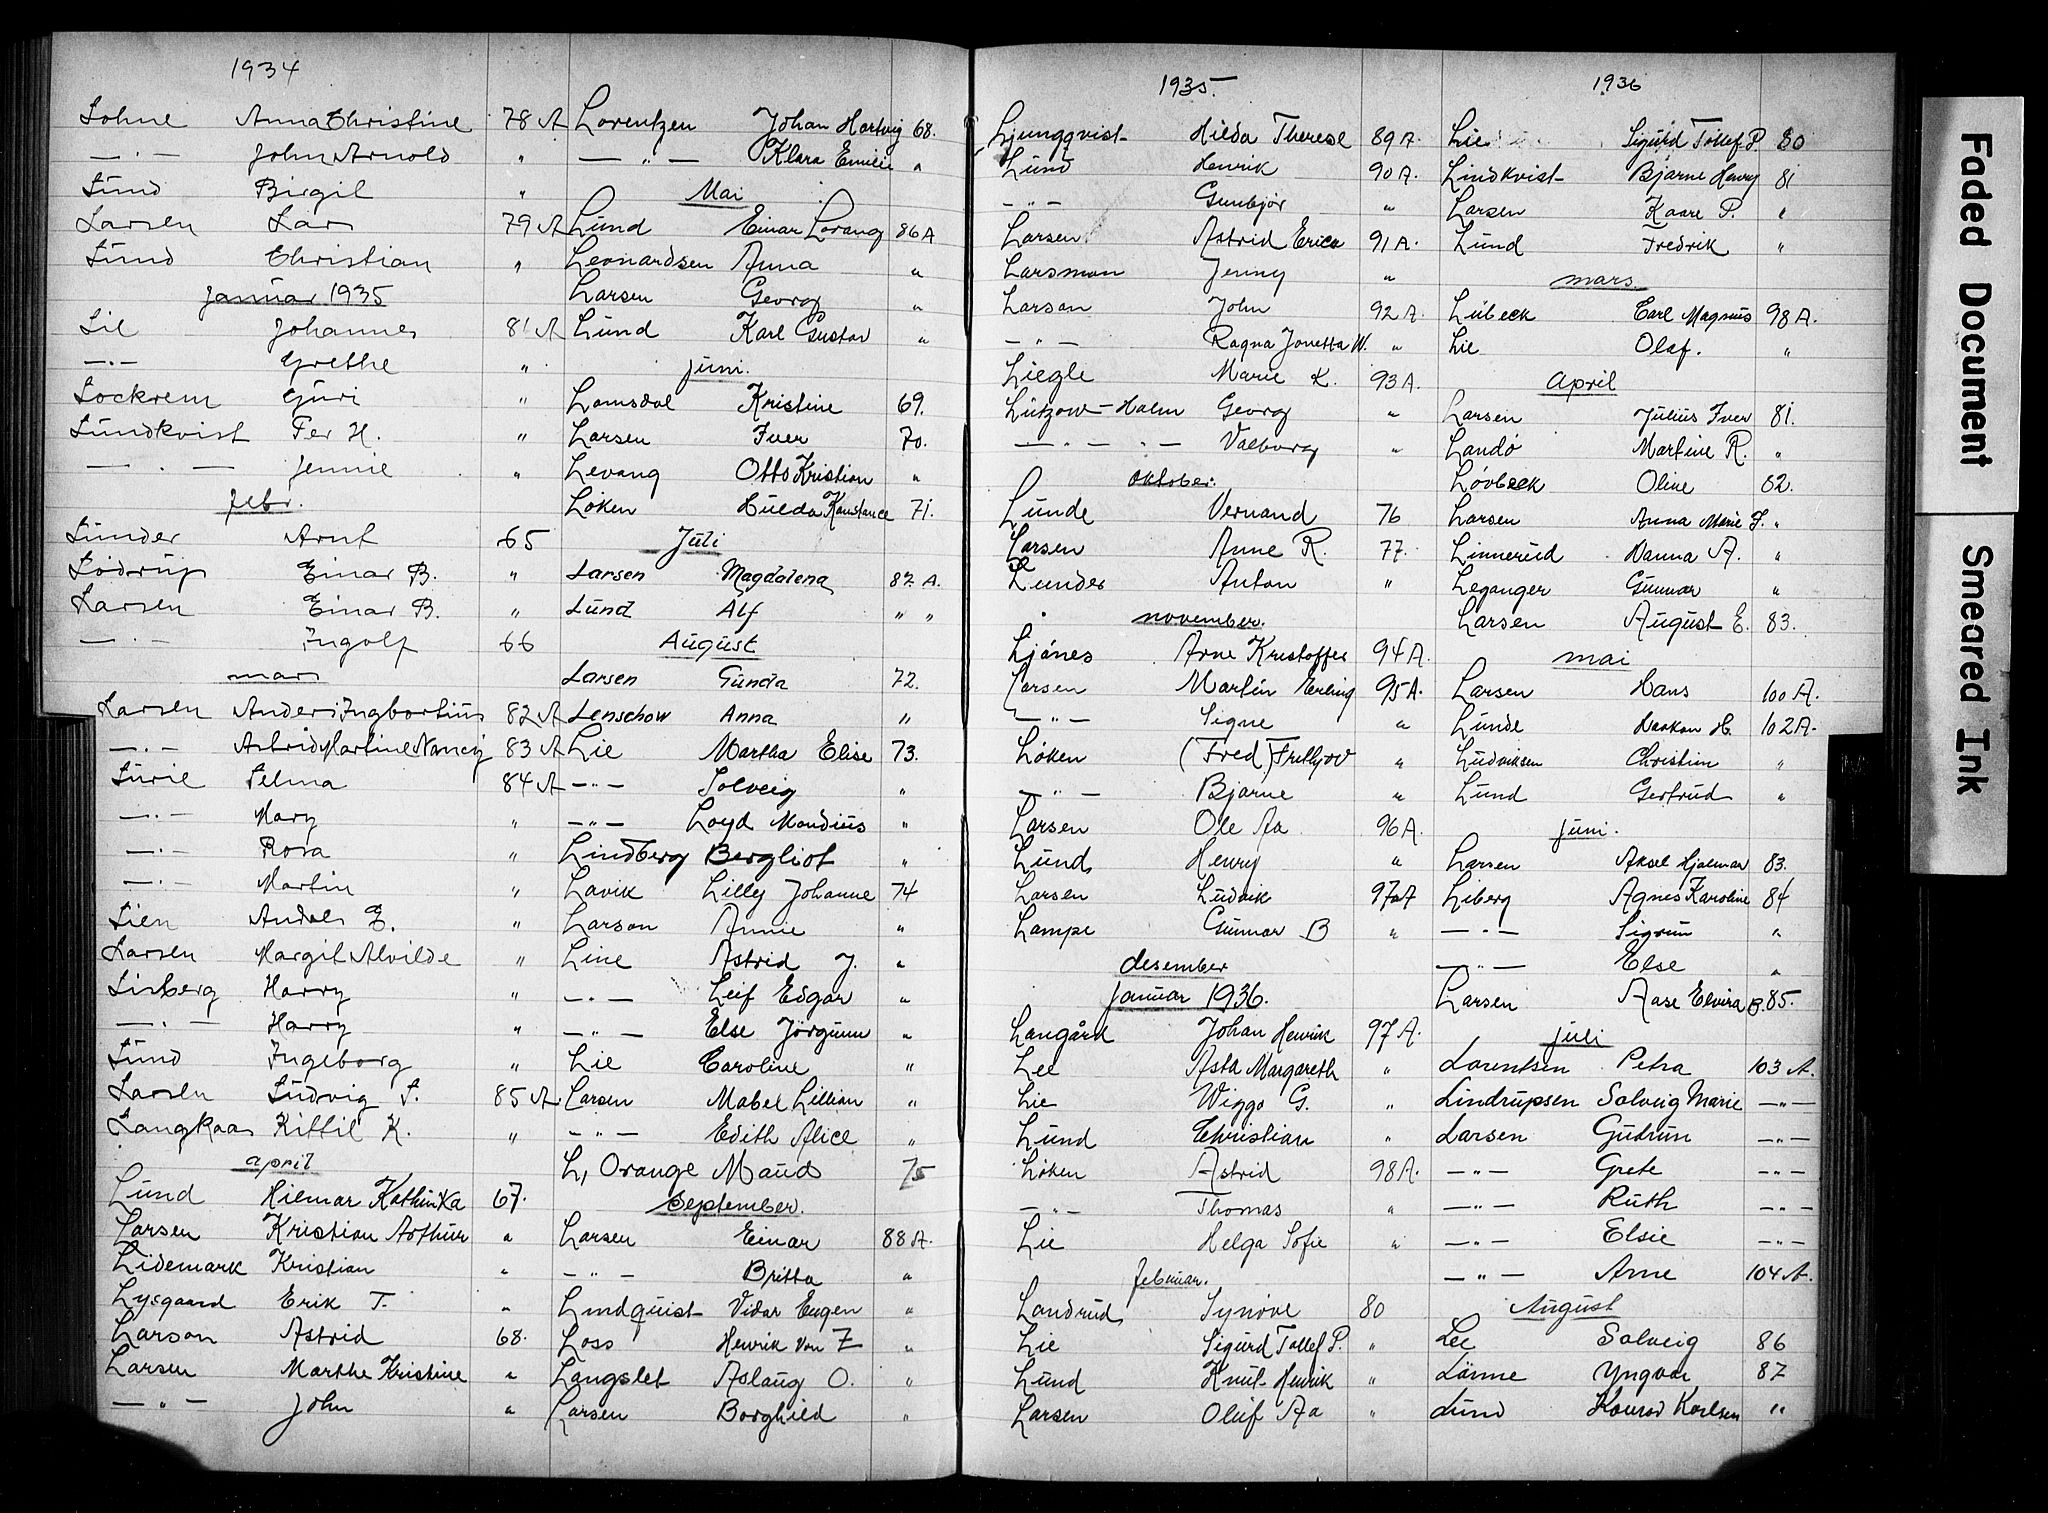 1934
Lohne Anna Christine 78 A
—·— John Arnold "
Lund Birgit "
Larsen Lars 79 A
Lund Christian "
januar 1935
Lie Johannes 81 A
—·— Grethe "
Lockrem Guri "
Lundkvist Per H. "
—·— Jennie "
febr.
Lunder Arnt 65
Lodrup Einar B. "
Larsen Einar B. "
—·— Ingolf 66
mars
Larsen Anders Ingbortius 82 A
—·— Astrid Martine Nancy 83 A
Lurie Selma 84 A
—·— Mary "
—·— Rosa "
—·— Martin "
Lien Andres E. "
Larsen Margit Alvilde "
Linberg Harry "
—·— Harry "
Lund Ingeborg "
Larsen Ludvig S. 85 A
Langkaas Kittil K. "
april
Lund Hilmar Kathinka 67.
Larsen Kristian Arthur "
Lidemark Kristian "
Lysgaard Erik T. "
Larson Astrid 68.
Larsen Marthe Kristine "
—"— John "
Lorentzen Johan Hartvig 68.
—"— Klara Emilie "
Mai
Lund Einar Lorang 86 A
Leonardsen Anna "
Larsen Georg "
Lund Karl Gustav "
juni.
Lomsdal Kristine 69.
Larsen Iver 70.
Levang Otto Kristian "
Løken Hulda Konstance 71.
Juli
Larsen Magdalena 87 A.
Lund Alf " "
August
Larsen Gunda 72.
Lenschow Anna "
Lie Martha Elise 73.
—"— Solveig "
—"— Loyd Mondius "
Lindberg Bergliot "
Lavik Lilly Johanne 74
Larson Annie "
Line Astrid J. "
—"— Leif Edgar "
—"— Else Jørgunn "
Lie Caroline "
Larsen Mabel Lillian "
—"— Edith Alice "
L, Orange Maud 75
September.
Larsen Einar 88 A.
—"— Britta "
Lindquist Vidar Eugen "
Loss Henrik von Z "
Langslet Aslaug O. "
Larsen Borghild "
1935.
Ljungqvist Hilda Therese 89 A.
Lund Henrik 90 A.
—"— Gunbjør "
Larsen Astrid Erica 91 A.
Larsmon Jenny "
Larson John 92 A.
—"— Ragna Jonetta W. "
Liegle Marie K. 93 A.
Lützow-Holm Georg "
—"— "— Valborg "
oktober.
Lunde Vernand 76
Larsen Anne R. 77.
Lunder Anton "
november.
Ljónes Arne Kristoffer 94 A.
Larsen Martin Erling 95 A.
—"— Signe "
Løken (Fred) Frithjov "
—"— Bjarne "
Larsen Ole Aa 96 A.
Lund Henry "
Larsen Ludvik 97 A
Lampe Gunnar B "
desember
januar 1936.
Langård Johan Henrik 97 A.
Lee Asta Margareth "
Lie Wiggo G. "
Lund Christian "
Løken Astrid 98 A.
—"— Thomas "
Lie Helga Sofie "
februar.
Landrud Synøve 80
Lie Sigurd Tollef P. "
Lund Knut Henrik "
Larsen Oluf Aa "
1936
Lie Sigurd Tollef P. 80
Lindkvist Bjarne Henry 81
Larsen Kaare P. "
Lund Fredrik "
mars
Lübeck Carl Magnus 98 A.
Lie Olaf. "
April
Larsen Julius Iver 81.
Landó Martine R. "
Løvbeck Oline 82.
Larsen Anna Marie J. "
Linnerud Hanna A. "
Leganger Gunnar "
Larsen August E. 83.
mai
Larsen Hans 100 A.
Lunde Haakon H. 102 A.
Ludviksen Christian "
Lund Gertrud "
juni.
Larsen Aksel Hjalmar 83.
Liberg Agnes Karoline 84
—"— Sigrun "
—"— Else "
Larsen Aase Elvira B. 85.
juli
Lorentsen Petra 103 A.
Lindrupsen Solveig Marie —"—
Larsen Gudrun —"—
—"— Grete —"—
—"— Ruth —"—
—"— Elsie —"—
—"— Arne 104 A.
August
Lee Solveig 86
Lönne Yngvar 87
Lund Konrad Karlsen "
Faded Document
Smeared Ink